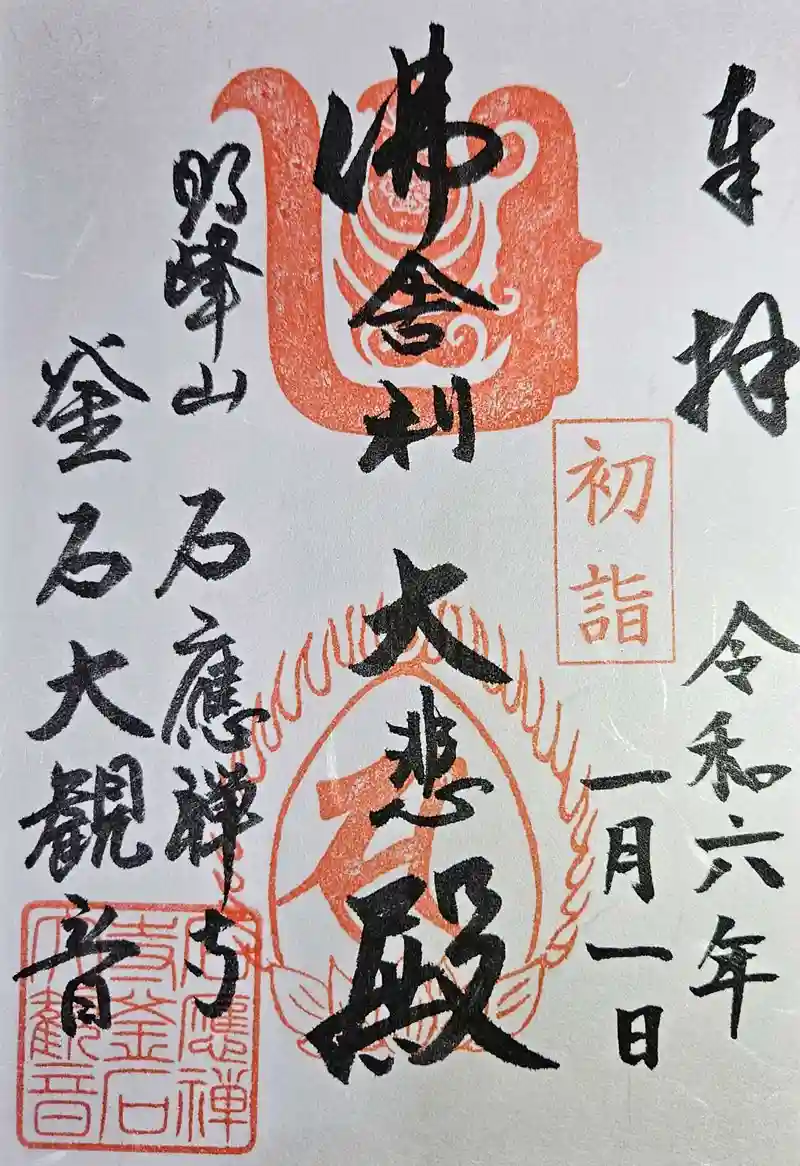 奉拝
令和六年
一月一日
初詣
佛舎利
大悲殿
明峰山
石應禅寺
釜石大観音
石應禅
寺釜石
大観音